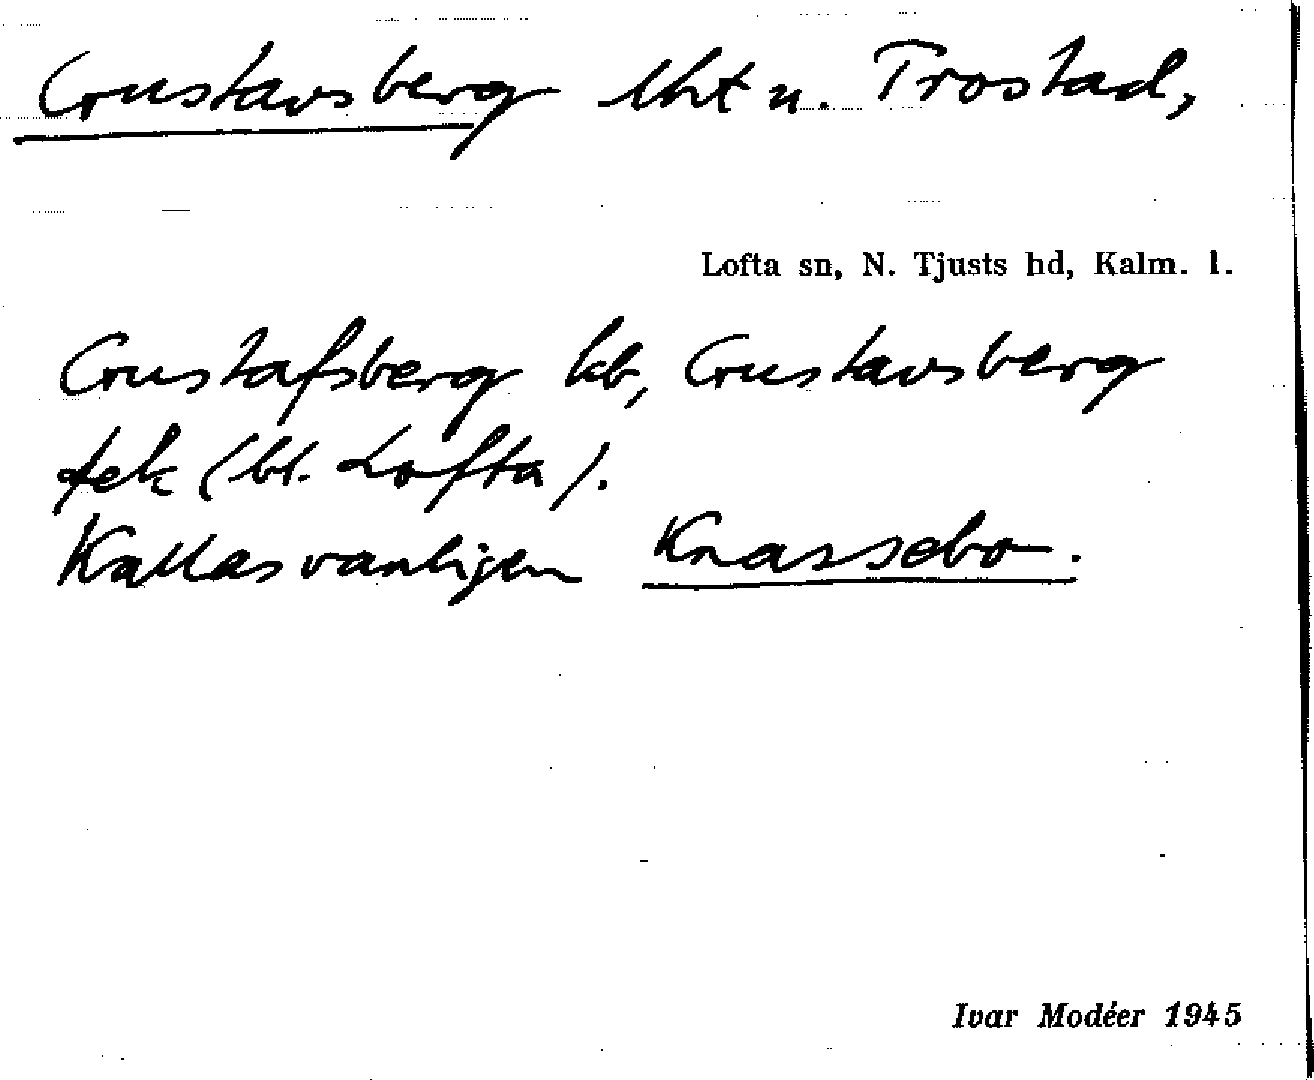 Gustavsberg lht u. Trostad,
Lofta sn, N. Tjusts hd, Kalm. l.
Gustafsberg kb, Gustavsberg
fek (bl. Lofta).
Kallas vanligen Knassebo.
Ivar Modéer 1945